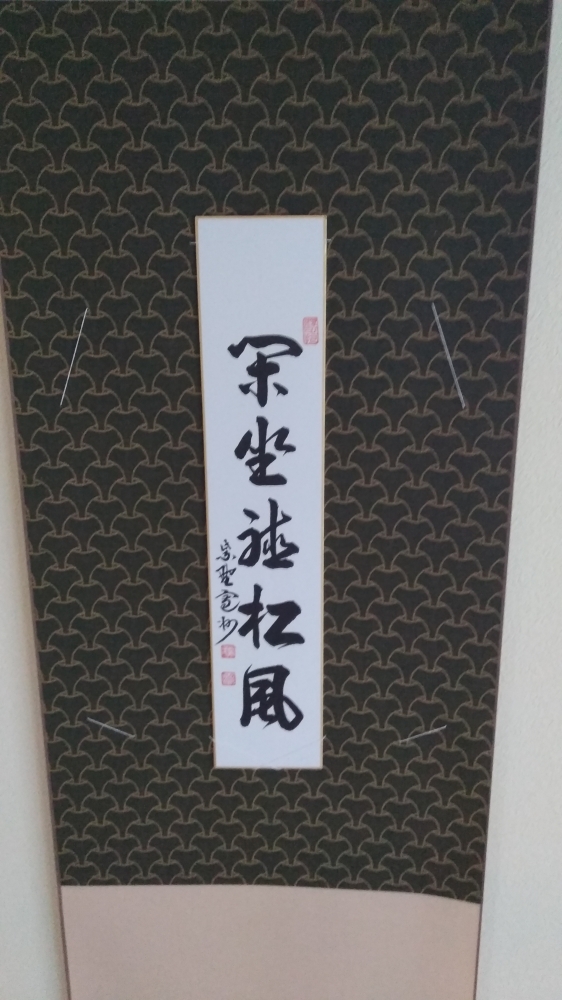 閑坐聴松風